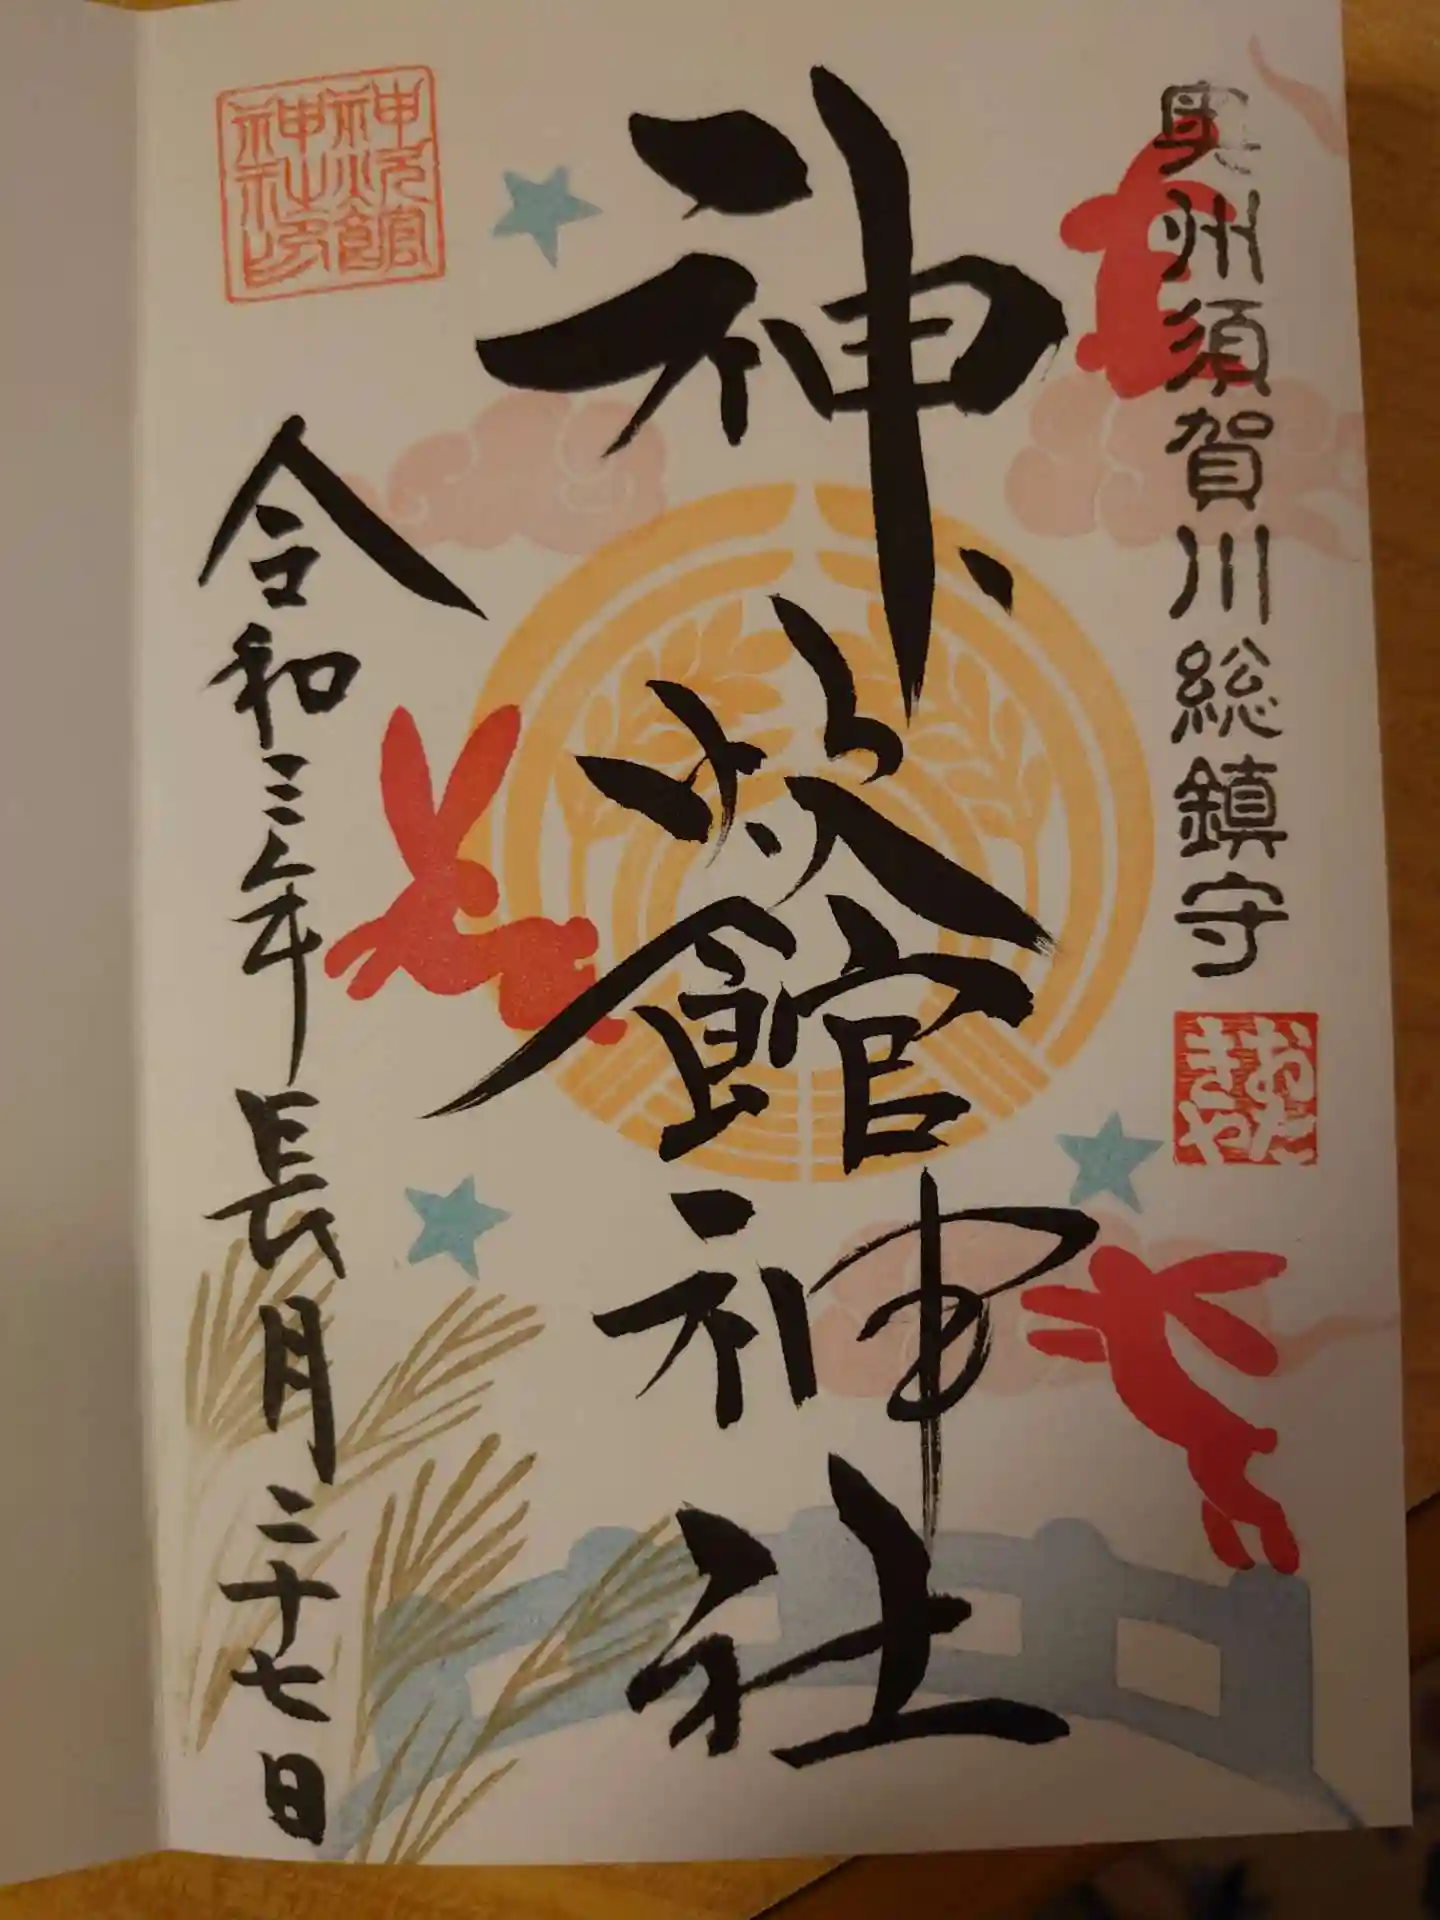 奥州須賀川総鎮守
おたきや
神炊館神社
神炊館
神社
令和三年長月二十七日